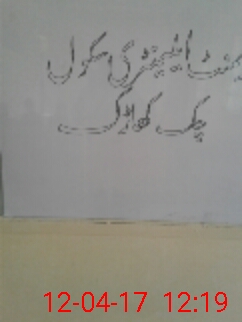 ایلیمنٹری سکول
چک کھاڑک
12-04-17 12:19